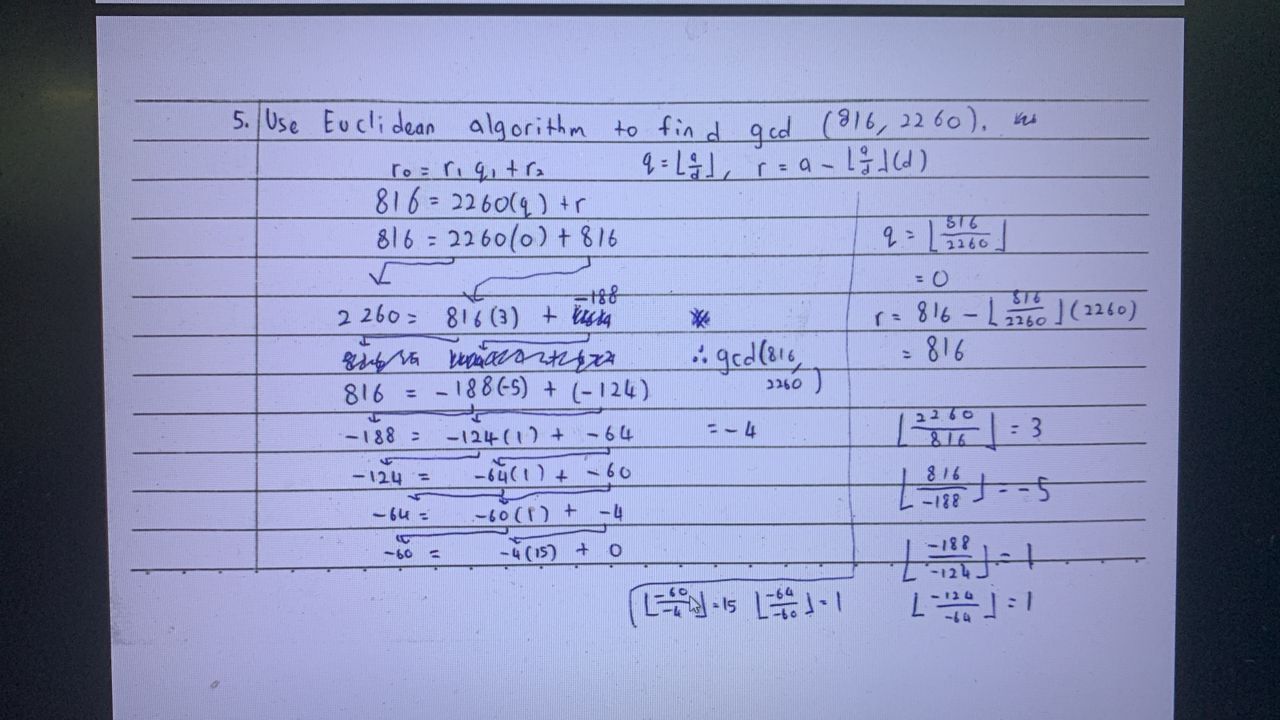 5. Use Euclidean algorithm to find gcd (816, 2260).
r₀ = r₁ q₁ + r₂
q = ⌊a/d⌋, r = a - ⌊a/d⌋(d)
816 = 2260(q) + r
816 = 2260(0) + 816
2260 = 816(3) + -188
816 = -188(-5) + (-124)
-188 = -124(1) + -64
-124 = -64(1) + -60
-64 = -60(1) + -4
-60 = -4(15) + 0
∴ gcd(816, 2260)
= -4
q = ⌊816/2260⌋
= 0
r = 816 - ⌊816/2260⌋(2260)
= 816
⌊2260/816⌋ = 3
⌊816/-188⌋ = -5
⌊-188/-124⌋ = 1
⌊-124/-64⌋ = 1
⌊-60/-4⌋ = 15 ⌊-64/-60⌋ = 1